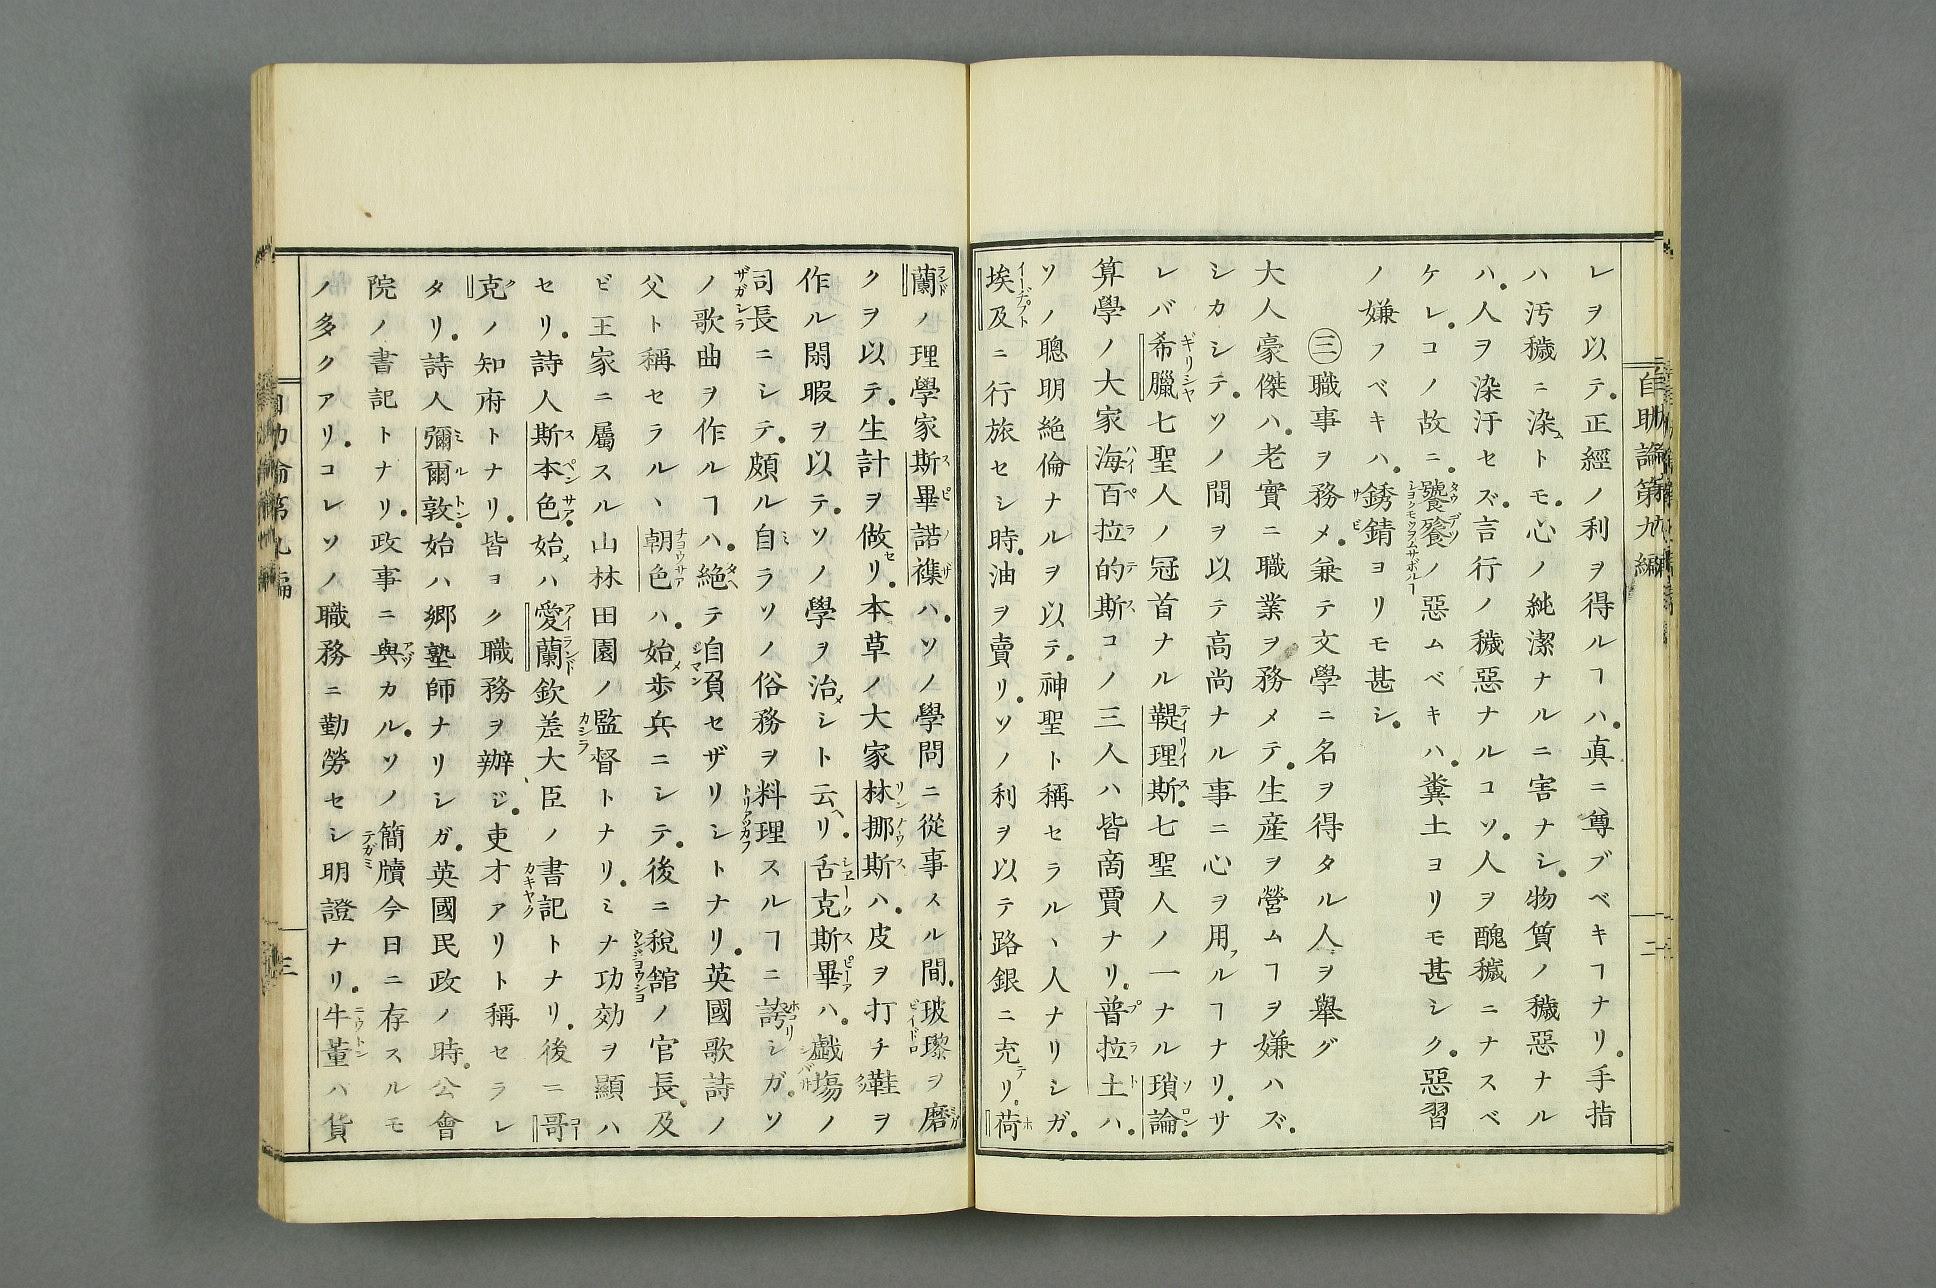 自助論第九編
二
レヲ以テ。正經ノ利ヲ得ルヿハ。真ニ尊ブベキヿナリ。手指
ハ汚穢ニ染ムトモ。心ノ純潔ナルニ害ナシ。物質ノ穢惡ナル
ハ。人ヲ染汙セズ。言行ノ穢惡ナルコソ。人ヲ醜穢ニナスベ
ケレ。コノ故ニ。饕餮ノ惡ムベキハ。糞土ヨリモ甚シク。惡習
ノ嫌フベキハ。銹錆ヨリモ甚シ。
㊂職事ヲ務メ。兼テ文學ニ名ヲ得タル人ヲ舉グ
大人豪傑ハ。老實ニ職業ヲ務メテ。生産ヲ營ムヿヲ嫌ハズ。
シカシテ。ソノ間ヲ以テ高尚ナル事ニ心ヲ用フルヿナリ。サ
レバ希臘七聖人ノ冠首ナル鞮理斯。七聖人ノ一ナル瑣論。
算學ノ大家海百拉的斯コノ三人ハ皆啇賈ナリ。普拉土ハ。
ソノ聰明絶倫ナルヲ以テ。神聖ト稱セラルヽ人ナリシガ。
埃及ニ行旅セシ時。油ヲ賣リ。ソノ利ヲ以テ路銀ニ充テリ。荷
蘭ノ理學家斯畢諾襍ハ。ソノ學問ニ從事スル間。玻瓈ヲ磨
クヲ以テ。生計ヲ做セリ。本草ノ大家林挪斯ハ。皮ヲ打チ鞋ヲ
作ル閑暇ヲ以テ。ソノ學ヲ治メシト云ヘリ。舌克斯畢ハ。戲塲ノ
司長ニシテ。頗ル自ラソノ俗務ヲ料理スルヿニ誇リシガ。ソ
ノ歌曲ヲ作ルヿハ。絶ヘテ自負セザリシトナリ。英國歌詩ノ
父ト稱セラルヽ朝色ハ。始メ歩兵ニシテ。後ニ稅館ノ官長。及
ビ王家ニ屬スル山林田園ノ監督トナリ。ミナ功効ヲ顯ハ
セリ。詩人斯本色。始メハ愛蘭欽差大臣ノ書記トナリ。後ニ哥
克ノ知府トナリ。皆ヨク職務ヲ辦ジ。吏才アリト稱セラレ
タリ。詩人彌爾敦。始ハ郷塾師ナリシガ。英國民政ノ時。公會
院ノ書記トナリ。政事ニ與カル。ソノ簡牘今日ニ存スルモ
ノ多クアリ。コレソノ職務ニ勤勞セシ明證ナリ。牛董ハ貨
自助論第九編
三